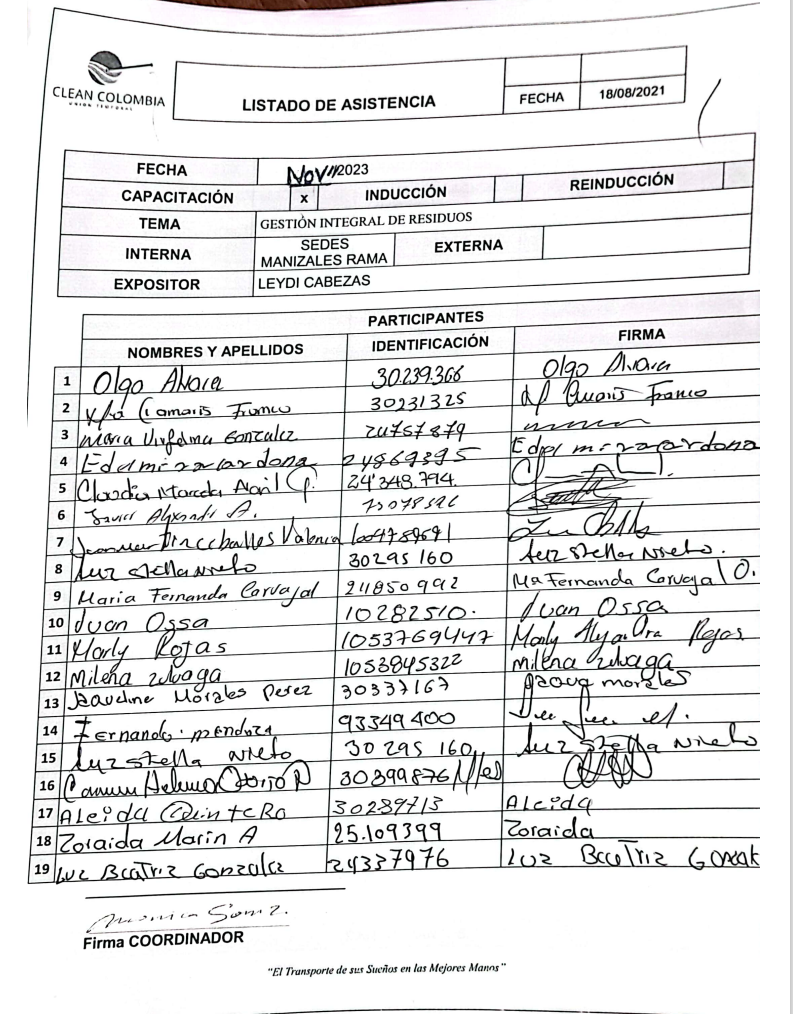 CLEAN COLOMBIA
UNION TEMPORAL
LISTADO DE ASISTENCIA
FECHA 18/08/2021
FECHA Nov 2023
CAPACITACIÓN x INDUCCIÓN REINDUCCIÓN
TEMA GESTIÓN INTEGRAL DE RESIDUOS
INTERNA SEDES MANIZALES RAMA EXTERNA
EXPOSITOR LEYDI CABEZAS
PARTICIPANTES
NOMBRES Y APELLIDOS IDENTIFICACIÓN FIRMA
1 Olga 30.239.366 Olga
2 30231325 Franco
3 Maria Gonzalez 24757879
4 Edelmira cardona 24869395 Edelmira cardona
5 Claudia Marcela 24'348.794
6 Javier A.
7 Valencia
8 Luz stella nieto 30295 160 Luz stella nieto.
9 Maria Fernanda Carvajal 24850992 Ma Fernanda Carvajal O.
10 Juan Ossa 10282510. Juan Ossa
11 Marly Rojas 1053769447 Marly Rojas
12 Milena Zuluaga 1053845322 milena Zuluaga
13 Jaqueline Morales Perez 30337167 morales
14 Fernando mendoza 93349400
15 Luz stella nieto 30 295 160 Luz stella nieto
16 30399876
17 Aleida QuinteRo 30289713 Aleida
18 Zoraida Marin A 25.109399 Zoraida
19 Luz Beatriz Gonzalez 24337976 Luz Beatriz
Firma COORDINADOR
"El Transporte de sus Sueños en las Mejores Manos"